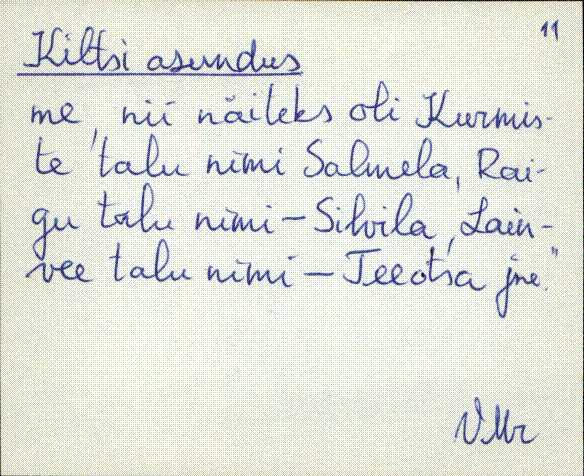 11
Kiltsi asundus
me, nii näiteks oli Kurmis-
te talu nimi Salmela, Rai-
gu talu nimi – Silvila, Lain-
vee talu nimi – Teeotsa jne."
VMr